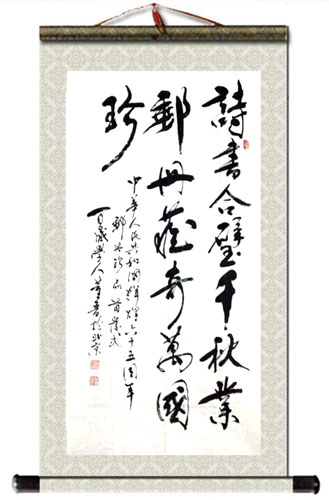 詩書合璧千秋業
郵冊藏奇萬國
珍
中華人民共和國輝煌六十五周年
郵冊珍品首發式
百歲學人
書於北京